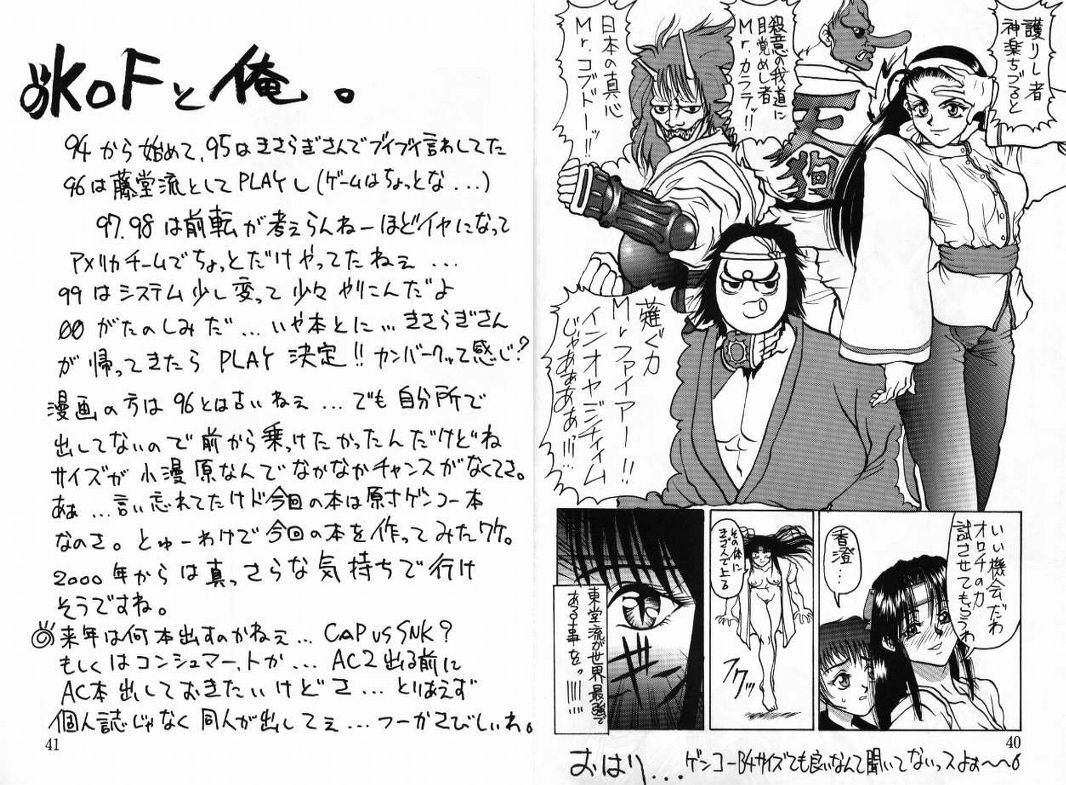 護りし者
神楽ちづると
殺意の我道に
目覚めし者
Mr.カラテッ!!
日本の真心
Mr.コブドーッ!!
天狗
薙ぐ力
Mrファイアー!!
イン オヤジチィィム
じゃあああぁ!!!…
いい機会だわ
オロチの力
試させてもらうわ
香澄…
その体に
きざんで上る
フクッ…
東堂流が世界最強で
ある事を。!!!!!……
40
おはり... ゲンコーB4サイズでも良いなんて聞いてないっスよぉ〜〜6
KOFと俺。
94から始めて、95はきさらぎさんでブイブイ言わしてた
96は藤堂流としてPLAYし(ゲームはちょっとな...)
97.98は前転が考えらんねーほどイヤになって
アメリカチームでちょっとだけやってたねぇ...
99はシステム少し変って少々やりこんだよ
00がたのしみだ...いや本とに...きさらぎさん
が帰ってきたらPLAY決定!!カンバークッて感じ?
漫画の方は96とは古いねぇ...でも自分所で
出してないので前から乗っけたかったんだけどね
サイズが小漫原なんでなかなかチャンスがなくてさ。
あぁ...言い忘れてたけド今回の本は原寸ゲンコー本
なのさ。とゅーわけで今回の本を作ってみたワケ。
2000年からは真っさらな気持ちで行け
そうですね。
来年は何本出すのかねぇ... CAP vs SNK?
もしくはコンシュマー、トか... AC2出る前に
AC本出しておきたいけどさ...とりあえず
個人誌じゃなく同人が出してぇ...つーかさびしいね。
41